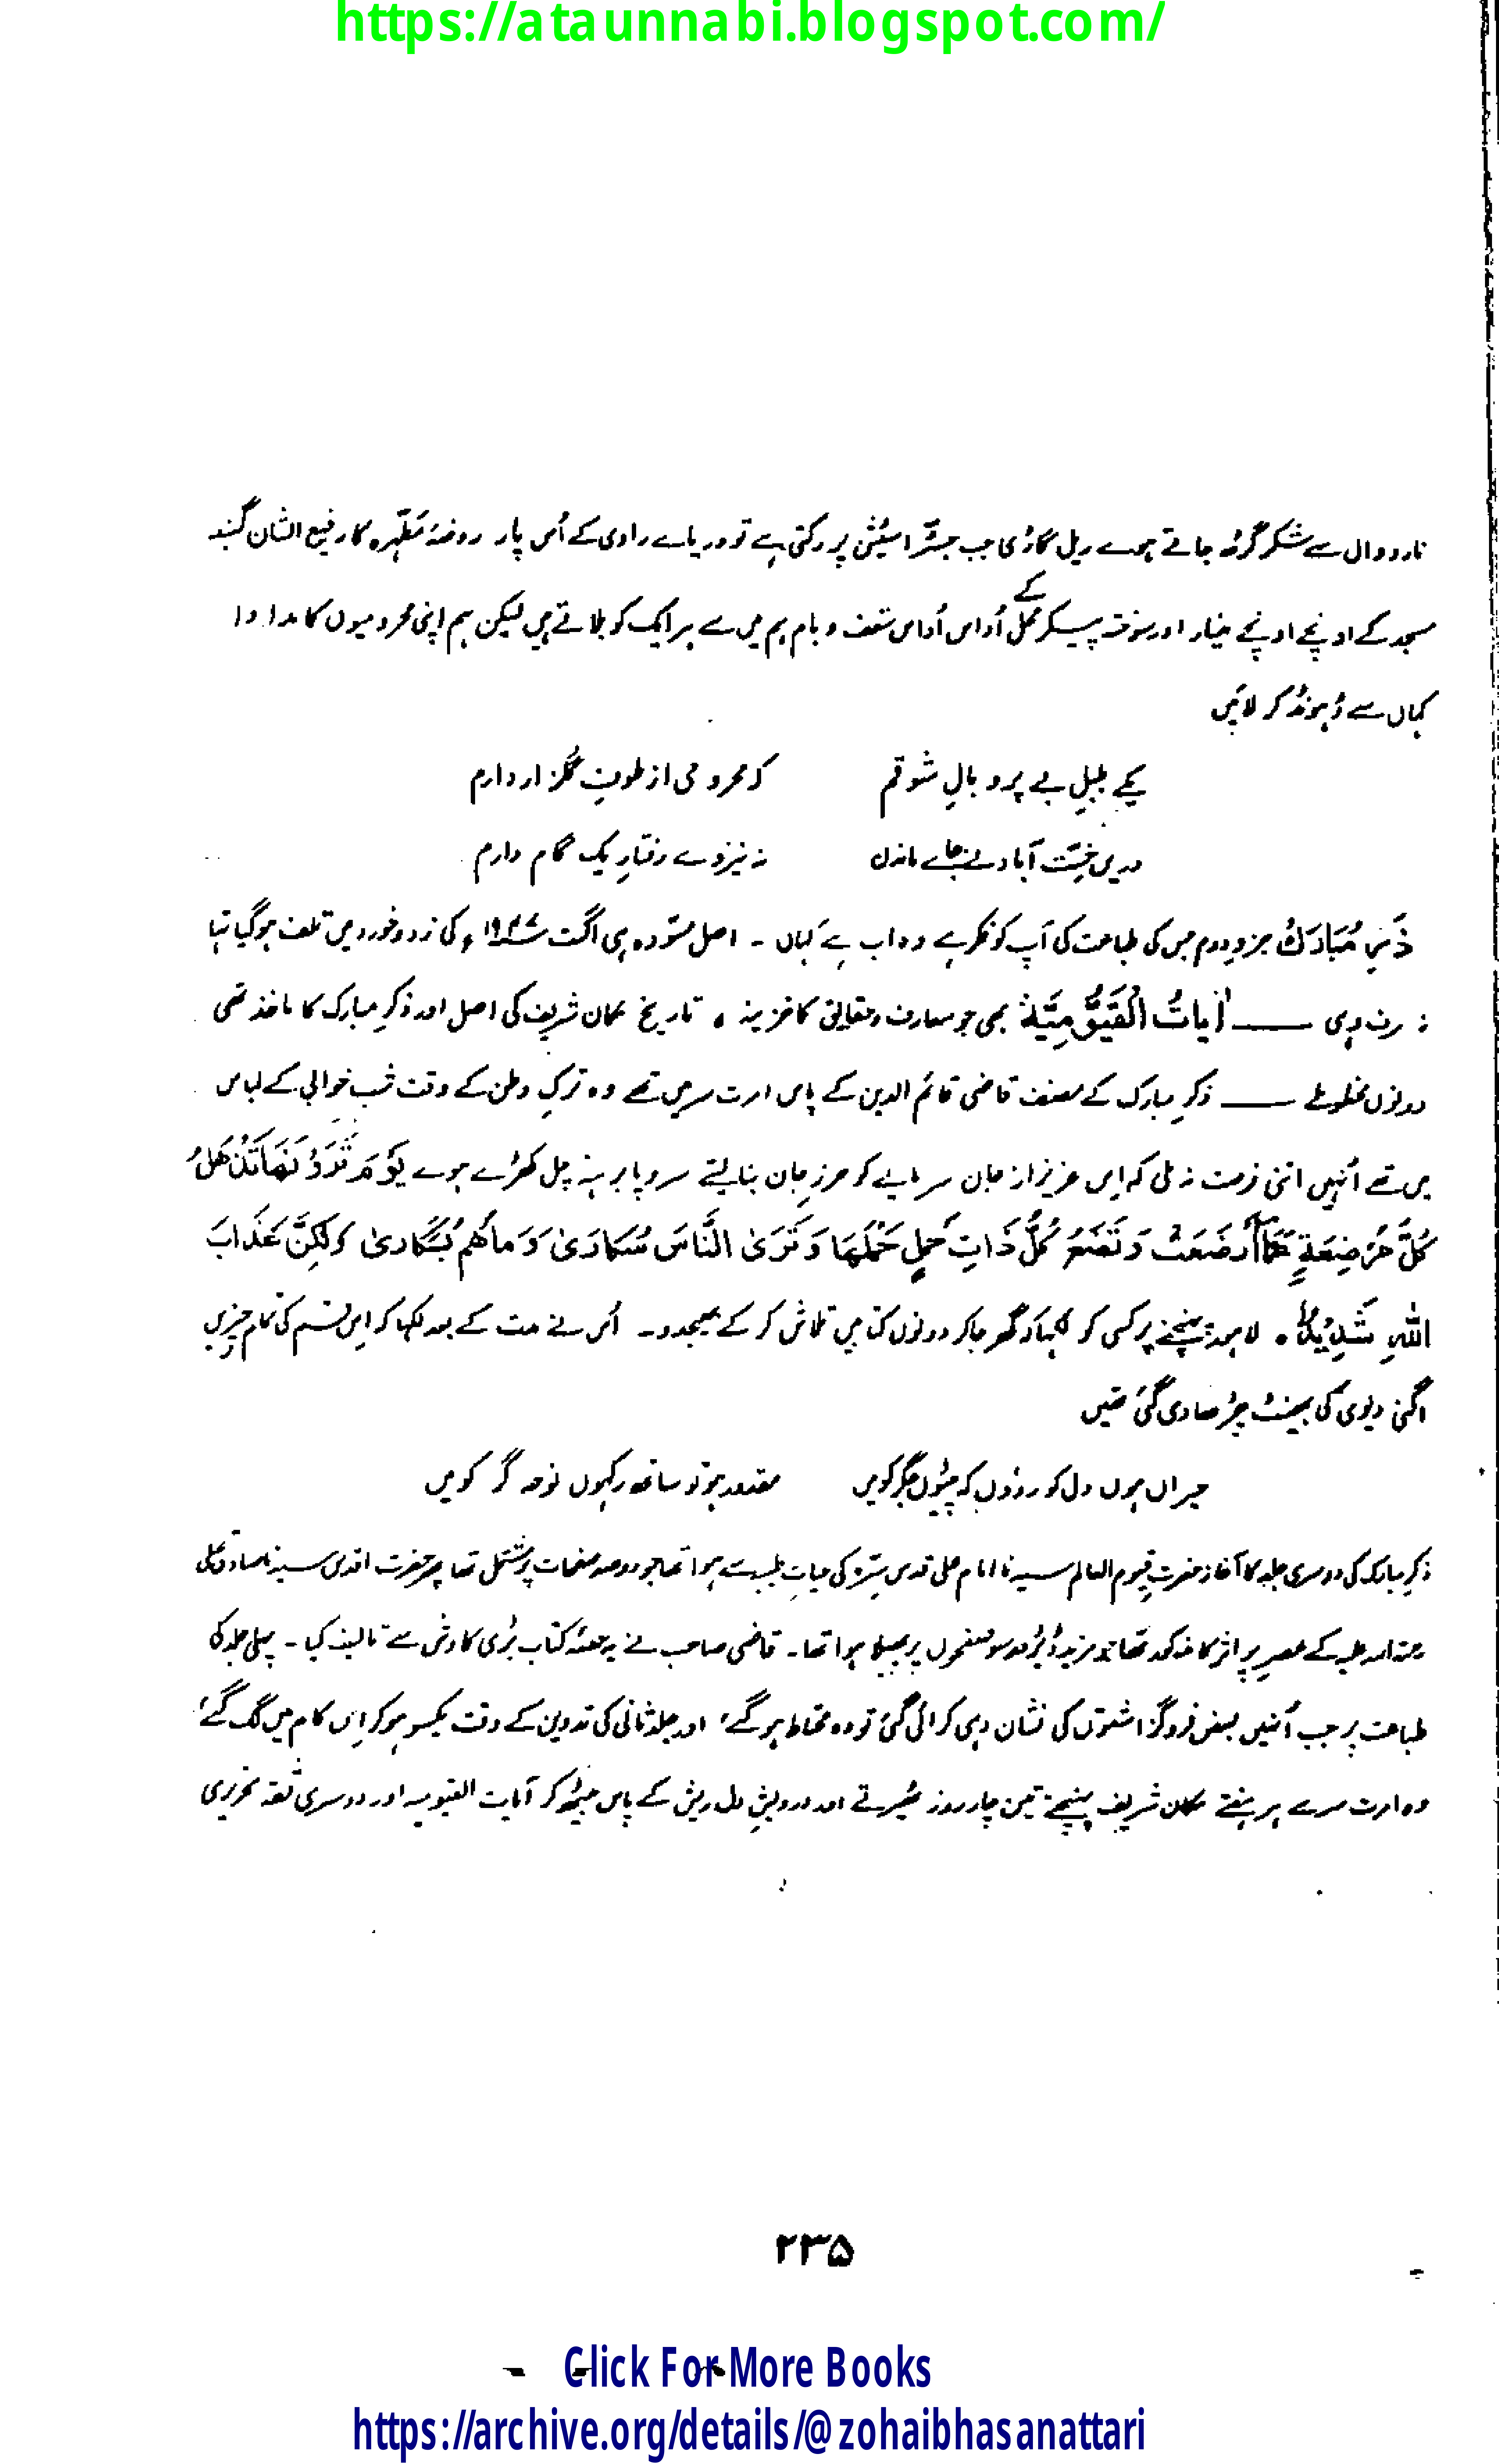 https://ataunnabi.blogspot.com/
نارووال سے شکرگڑھ جاتے ہوے ریل گاڑی جب جسّڑ اسٹیشن پر رکتی ہے تو دریاے راوی کے اُس پار روضۂ مطہّرہ کا رفیع الشان گنبد
مسجد کے اونچے اونچے مینار اور سوخت پیکر محل کے اُداس اُداس سقف و بام ہم میں سے ہر ایک کو بلاتے ہیں لیکن ہم اپنی محرومیوں کا مداوا
کہاں سے ڈہونڈ کر لائیں
یکے بلبلِ بے پر و بالِ شوقم کہ محرومی از طوفِ گلزار دارم
دریں آباد نے جاے ماندن نہ نیروے رفتارِ یک گام دارم
ذکرِ مُبارَک جزوِ دوم جس کی طباعت کی آپ کو فکر ہے وہ اب ہے کہاں ۔ اصل مسّودہ ہی اگست ۱۹۴۷ء کی زد و خورد میں تلف ہوگیا تہا
نہ صرف وہی —— آیاتُ الْقَیُّوْمِیَّۃ بھی جو معارف و حقایق کا خزینہ ، تاریخ مکان شریف کی اصل اور ذکرِ مبارک کا ماخذ تھی
دونوں مخطوطے —— ذکرِ مبارک کے مصنف قاضی قائم الدین کے پاس امرت سر میں تھے وہ ترکِ وطن کے وقت شب خوابی کے لباس
میں تھے اُنہیں اتنی فرصت نہ ملی کہ اِس عزیز از جان سرمایے کو حرزِ جان بنا لیتے سر و پا برہنہ چل کھڑے ہوے یَوْمَ تَرَوْنَهَا تَذْهَلُ
كُلُّ مُرْضِعَةٍ عَمَّا أَرْضَعَتْ وَتَضَعُ كُلُّ ذَاتِ حَمْلٍ حَمْلَهَا وَتَرَى النَّاسَ سُكَارَىٰ وَمَا هُمْ بِسُكَارىٰ وَلٰكِنَّ عَذَابَ
اللّٰهِ شَدِيْدٌ ۔ لاہور پہنچنے پر کسی کو لکہا کہ گھر جا کر دونوں کتابیں تلاش کر کے بھیجدو ۔ اُس نے مدت کے بعد لکہا کہ اِس قسم کی تمام چیزیں
اگنی دیوی کی بھینٹ چڑھا دی گئی تھیں
حیراں ہوں دل کو روؤں کہ پیٹوں جگر کو میں مقدور ہو تو ساتھ رکہوں نوحہ گر کو میں
ذکرِ مبارک کی دوسری جلد کا آغاز حضرت قیوم العالم سیدنا امام علی قدس سِرّہ کی حیاتِ طیبہ سے ہوا تھا جو دو صد صفحات پر مشتمل تھا پھر حضرت اقدس سیدنا صادق علی
رحمۃ اللہ علیہ کے عصرِ پر اثر کا مذکور تھا جو مزید ڈیڑھ سو صفحوں پر پھیلا ہوا تھا ۔ قاضی صاحب نے یہ حصّہ کتاب بڑی کاوش سے تالیف کیا ۔ پہلی جلد کی
طباعت پر جب اُنہیں بعض فروگزاشتوں کی نشان دہی کرائی گئی تو وہ محتاط ہو گئے اور جلد ثانی کی تدوین کے وقت یکسو ہو کر اِس کام میں لگ گئے
وہ امرت سر سے ہر ہفتے مکان شریف پہنچتے تین چار روز ٹہیرتے اور درویشِ دل ریش کے پاس بیٹھ کر آیات القیومیہ اور دوسری ثقہ تحریری
۲۳۵
Click For More Books
https://archive.org/details/@zohaibhasanattari